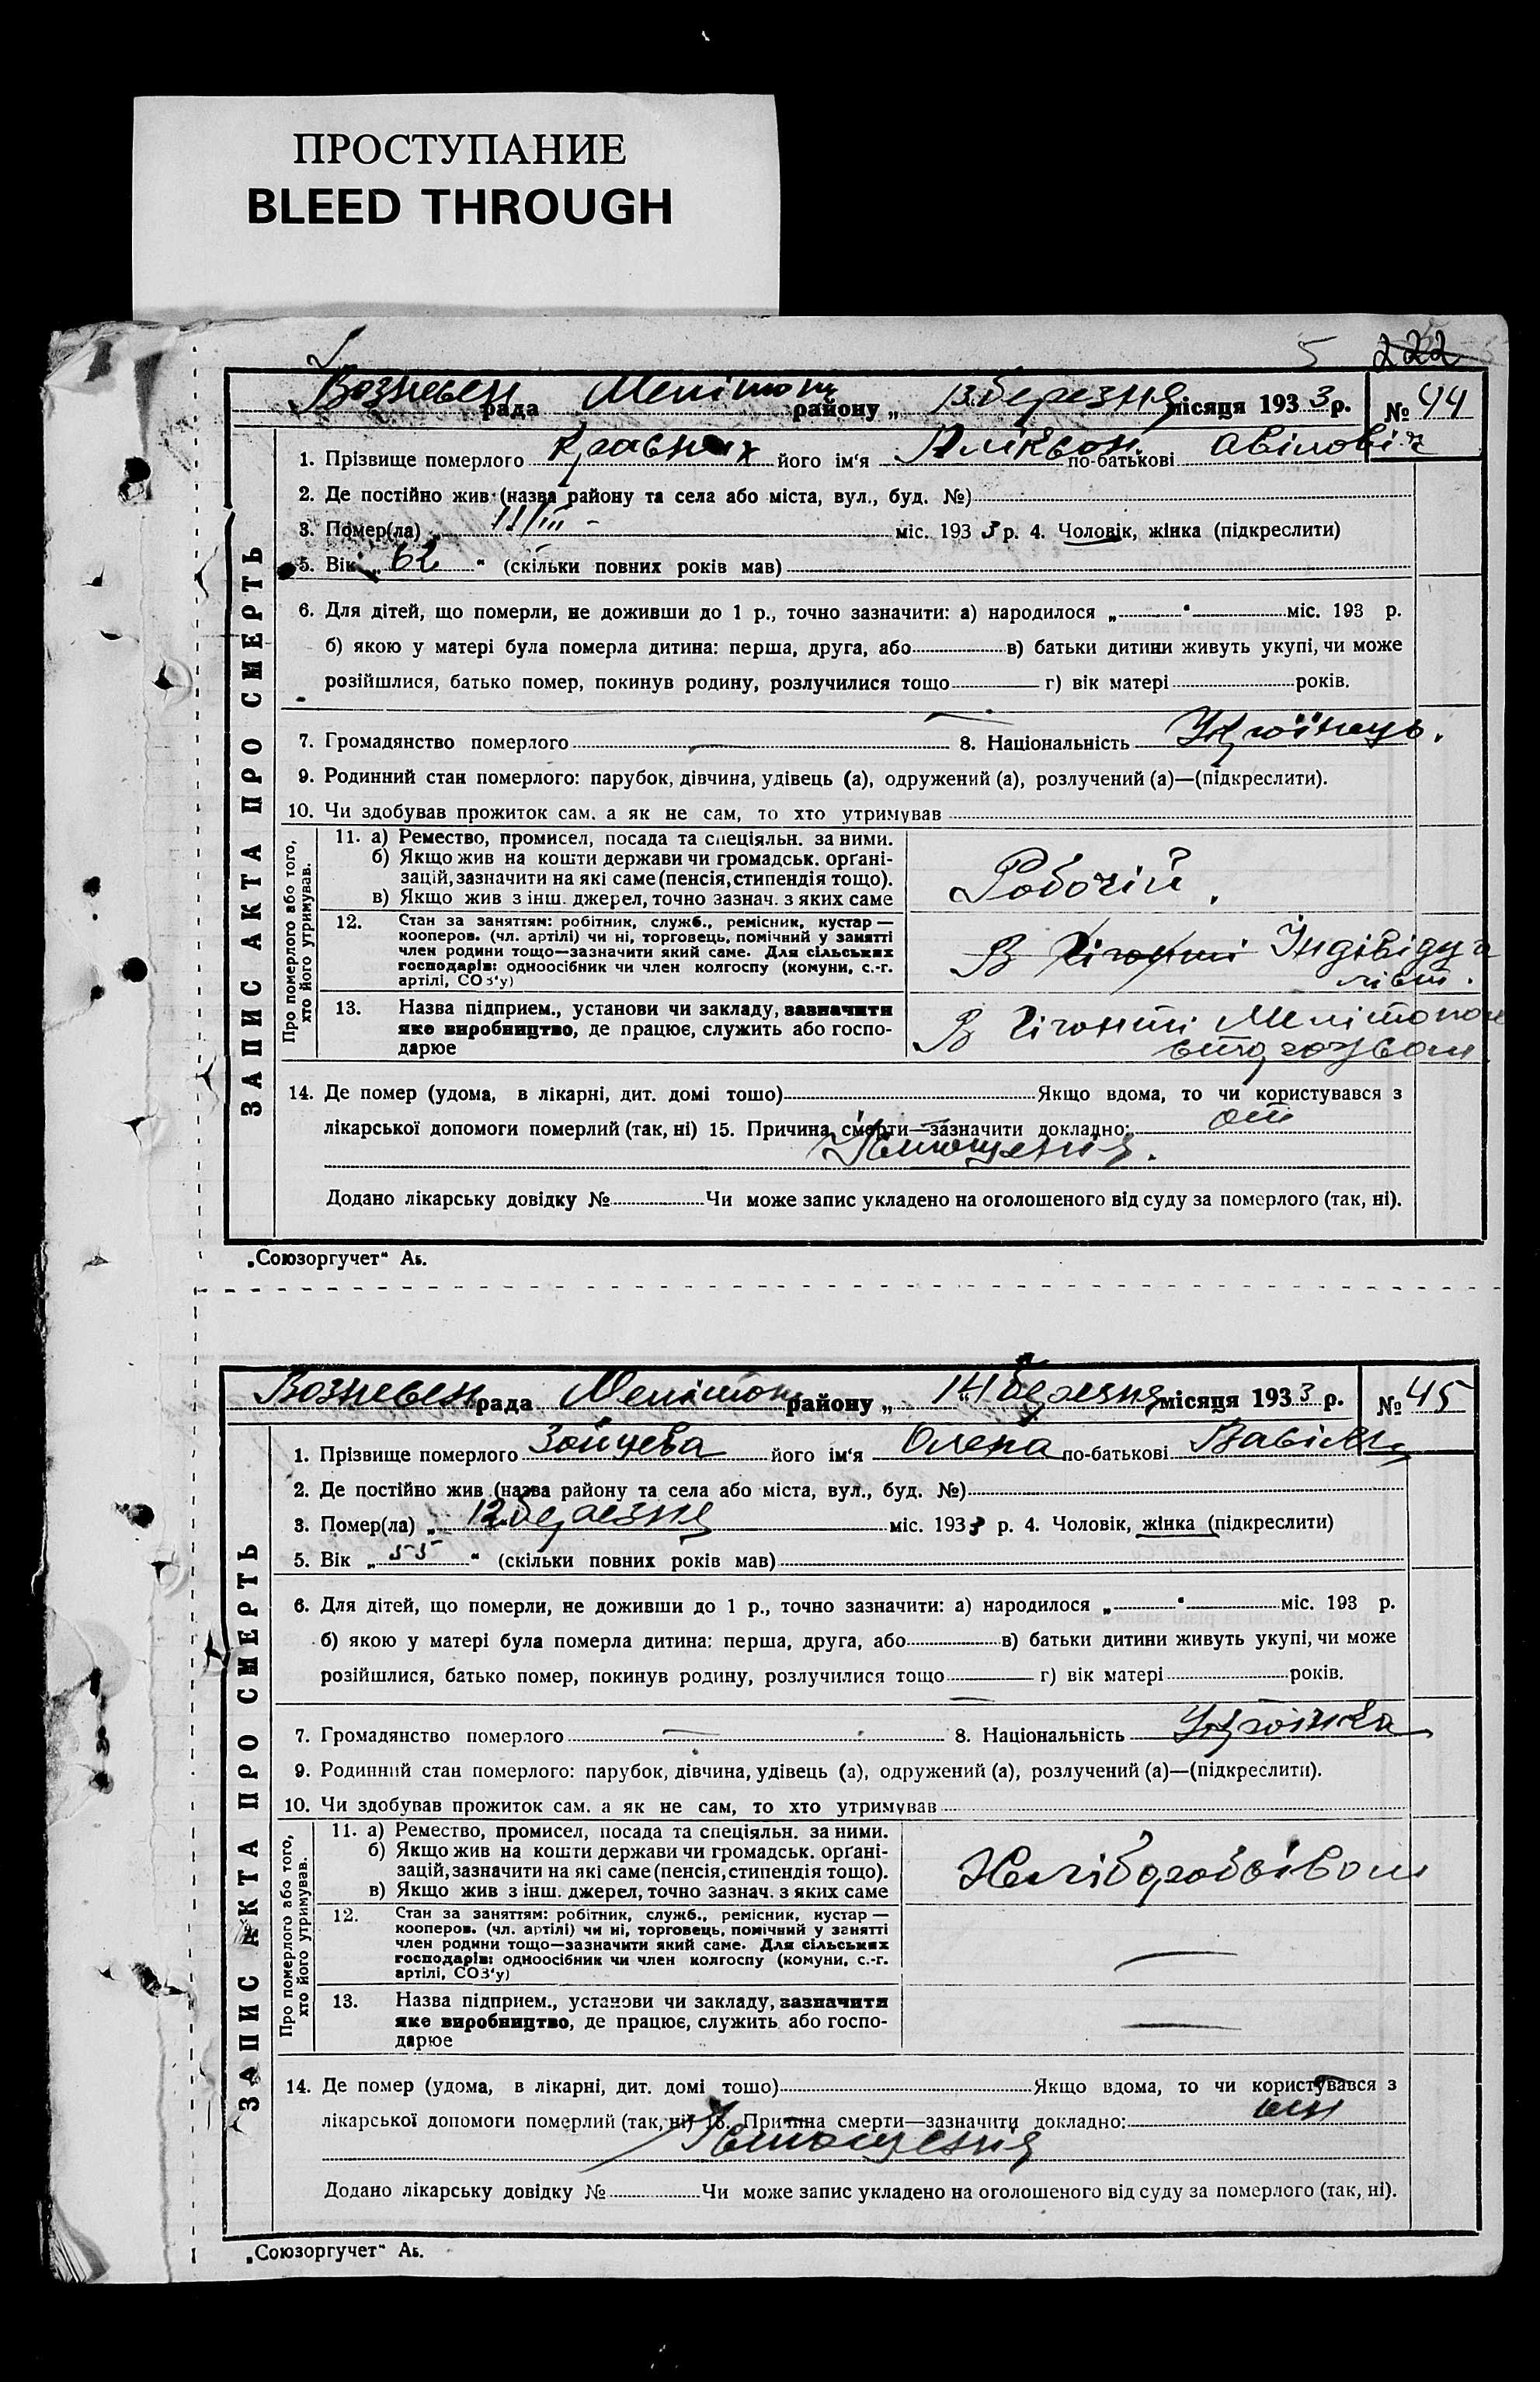 ПРОСТУПАНИЕ
BLEED THROUGH
5 222
Вознесен рада Мелітоп району „ 13 березня місяця 193 3 р. № 44
1. Прізвище померлого його ім'я по-батькові
2. Де постійно жив (назва району та села або міста, вул., буд. №)
3. Помер(ла) „ 11/III – міс. 193 3 р. 4. Чоловік, жінка (підкреслити)
5. Вік „ 62 “ (скільки повних років мав)
6. Для дітей, що померли, не доживши до 1 р., точно зазначити: а) народилося „ “ міс. 193 р.
б) якою у матері була померла дитина: перша, друга, або в) батьки дитини живуть укупі, чи може
розійшлися, батько помер, покинув родину, розлучилися тощо г) вік матері років.
7. Громадянство померлого — 8. Національність Украінець.
9. Родинний стан померлого: парубок, дівчина, удівець (а), одружений (а), розлучений (а)—(підкреслити).
10. Чи здобував прожиток сам. а як не сам, то хто утримував
Про померлого або того, хто його утримував.
11. а) Ремество, промисел, посада та спеціяльн. за ними.
б) Якщо жив на кошти держави чи громадськ. орґані-
зацій, зазначити на які саме (пенсія, стипендія тощо).
в) Якщо жив з інш. джерел, точно зазнач. з яких саме
Робочій.
12. Стан за заняттям: робітник, служб., ремісник, кустар —
кооперов. (чл. артілі) чи ні, торговець, помічний у занятті
член родини тощо—зазначити який саме. Для сільських
господарів: одноосібник чи член колгоспу (комуни, с.-г.
артілі, СОЗ'у)
В Гіганті Індівідуа
ліст.
13. Назва підприєм., установи чи закладу, зазначити
яке виробництво, де працює, служить або госпо-
дарює
В Гіганті Мелітопол
14. Де помер (удома, в лікарні, дит. домі тошо) Якщо вдома, то чи користувався з
лікарської допомоги померлий (так, ні) 15. Причина смерти—зазначити докладно: от
Істощения.
Додано лікарську довідку № Чи може запис укладено на оголошеного від суду за померлого (так, ні).
ЗАПИС АКТА ПРО СМЕРТЬ
„Союзоргучет“ Аь.
Вознесен рада Мелітоп району „ 14 березня місяця 193 3 р. № 45
1. Прізвище померлого Зайцева його ім'я Олена по-батькові
2. Де постійно жив (назва району та села або міста, вул., буд. №)
3. Помер(ла) „ 12 березня міс. 193 3 р. 4. Чоловік, жінка (підкреслити)
5. Вік „ 55 “ (скільки повних років мав)
6. Для дітей, що померли, не доживши до 1 р., точно зазначити: а) народилося „ “ міс. 193 р.
б) якою у матері була померла дитина: перша, друга, або в) батьки дитини живуть укупі, чи може
розійшлися, батько помер, покинув родину, розлучилися тощо г) вік матері років.
7. Громадянство померлого — 8. Національність Украінка
9. Родинний стан померлого: парубок, дівчина, удівець (а), одружений (а), розлучений (а)—(підкреслити).
10. Чи здобував прожиток сам. а як не сам, то хто утримував
Про померлого або того, хто його утримував.
11. а) Ремество, промисел, посада та спеціяльн. за ними.
б) Якщо жив на кошти держави чи громадськ. орґані-
зацій, зазначити на які саме (пенсія, стипендія тощо).
в) Якщо жив з інш. джерел, точно зазнач. з яких саме
12. Стан за заняттям: робітник, служб., ремісник, кустар —
кооперов. (чл. артілі) чи ні, торговець, помічний у занятті
член родини тощо—зазначити який саме. Для сільських
господарів: одноосібник чи член колгоспу (комуни, с.-г.
артілі, СОЗ'у)
—
13. Назва підприєм., установи чи закладу, зазначити
яке виробництво, де працює, служить або госпо-
дарює
—
14. Де помер (удома, в лікарні, дит. домі тошо) Якщо вдома, то чи користувався з
лікарської допомоги померлий (так, ні) 15. Причина смерти—зазначити докладно:
Істощения
Додано лікарську довідку № Чи може запис укладено на оголошеного від суду за померлого (так, ні).
ЗАПИС АКТА ПРО СМЕРТЬ
„Союзоргучет“ Аь.